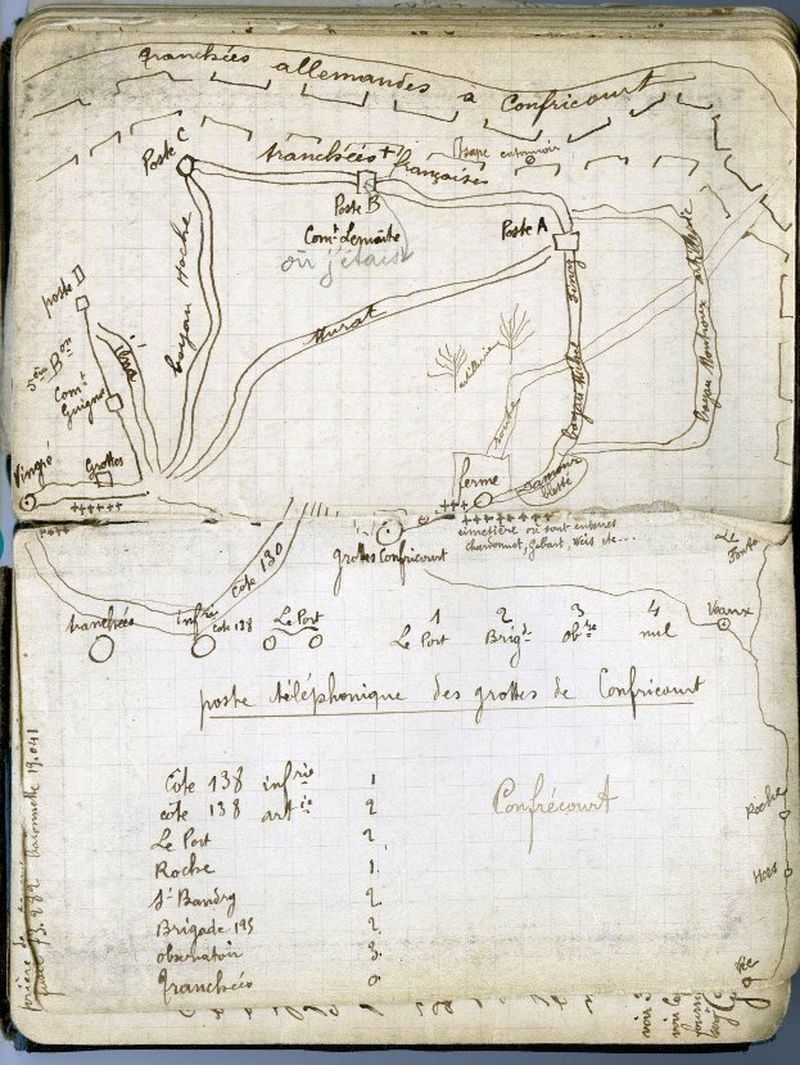 tranchées allemandes à Confricourt
Poste C
tranchées françaises
sape entonnoir
Poste B
Comt Lemaite
où j'étais
Poste A
boyau Hoche
Murat
Iéna
poste D
5ème Bon
Comt
Guignot
Vingré
Grottes
artillerie
route
boyau Michel
boyau Montroux artillerie
ferme
Samour blessé
cimetière où sont enterrés
Chardonnet, Gabart, Weis etc...
grottes Confricourt
côte 130
Le
Vaux
tranchées
infrie
côte 138
Le Port
1 2 3 4
Le Port Brigde obre nul
poste téléphonique des grottes de Confricourt
Côte 138 infrie 1
côte 138 artie 2
Le Port 2
Roche 1
St Bandry 2
Brigade 195 2
observatoir 3
Tranchées 0
Confrécourt
Roche
Hors
Vic
baïonnette 19.041
voir
voir le